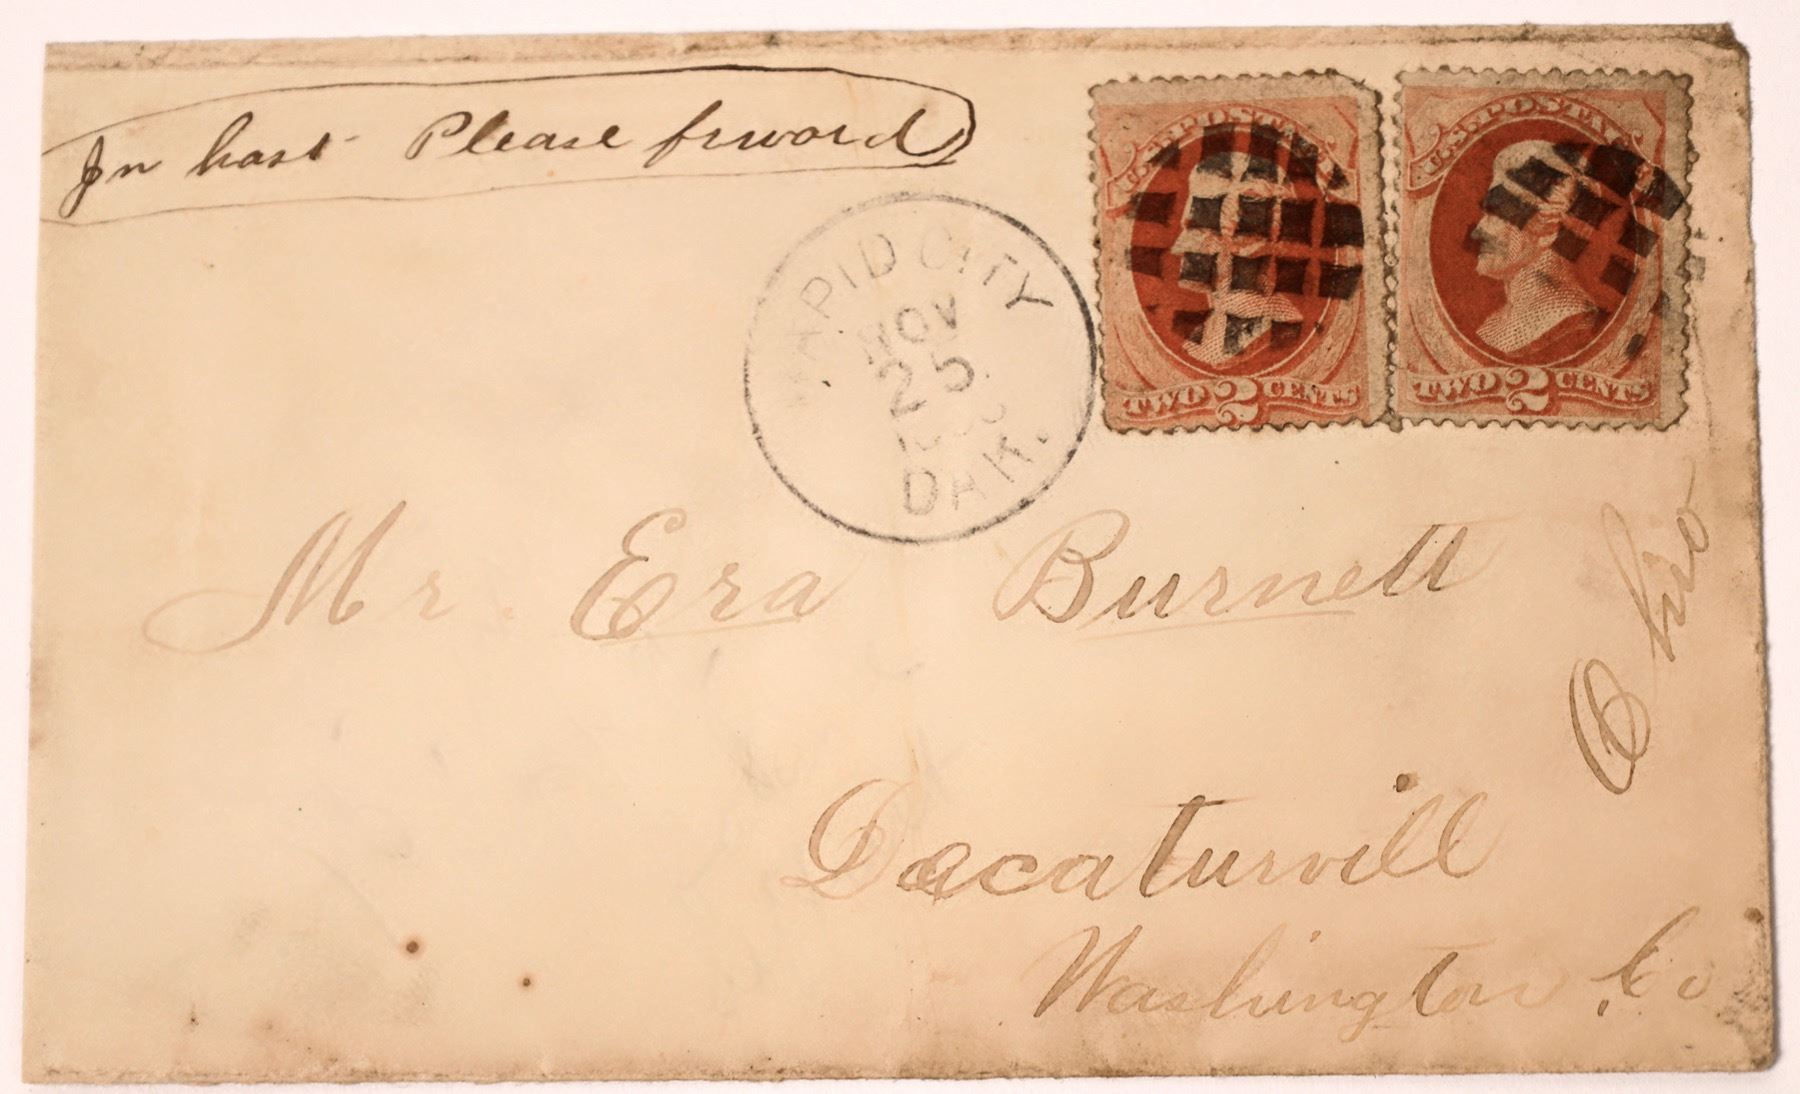 In hast Please frword
U.S. POSTAGE
TWO 2 CENTS
U.S. POSTAGE
TWO 2 CENTS
RAPID CITY
NOV
25
DAK.
Mr. Era Burnett
Decaturvill
Washington Co
Ohio